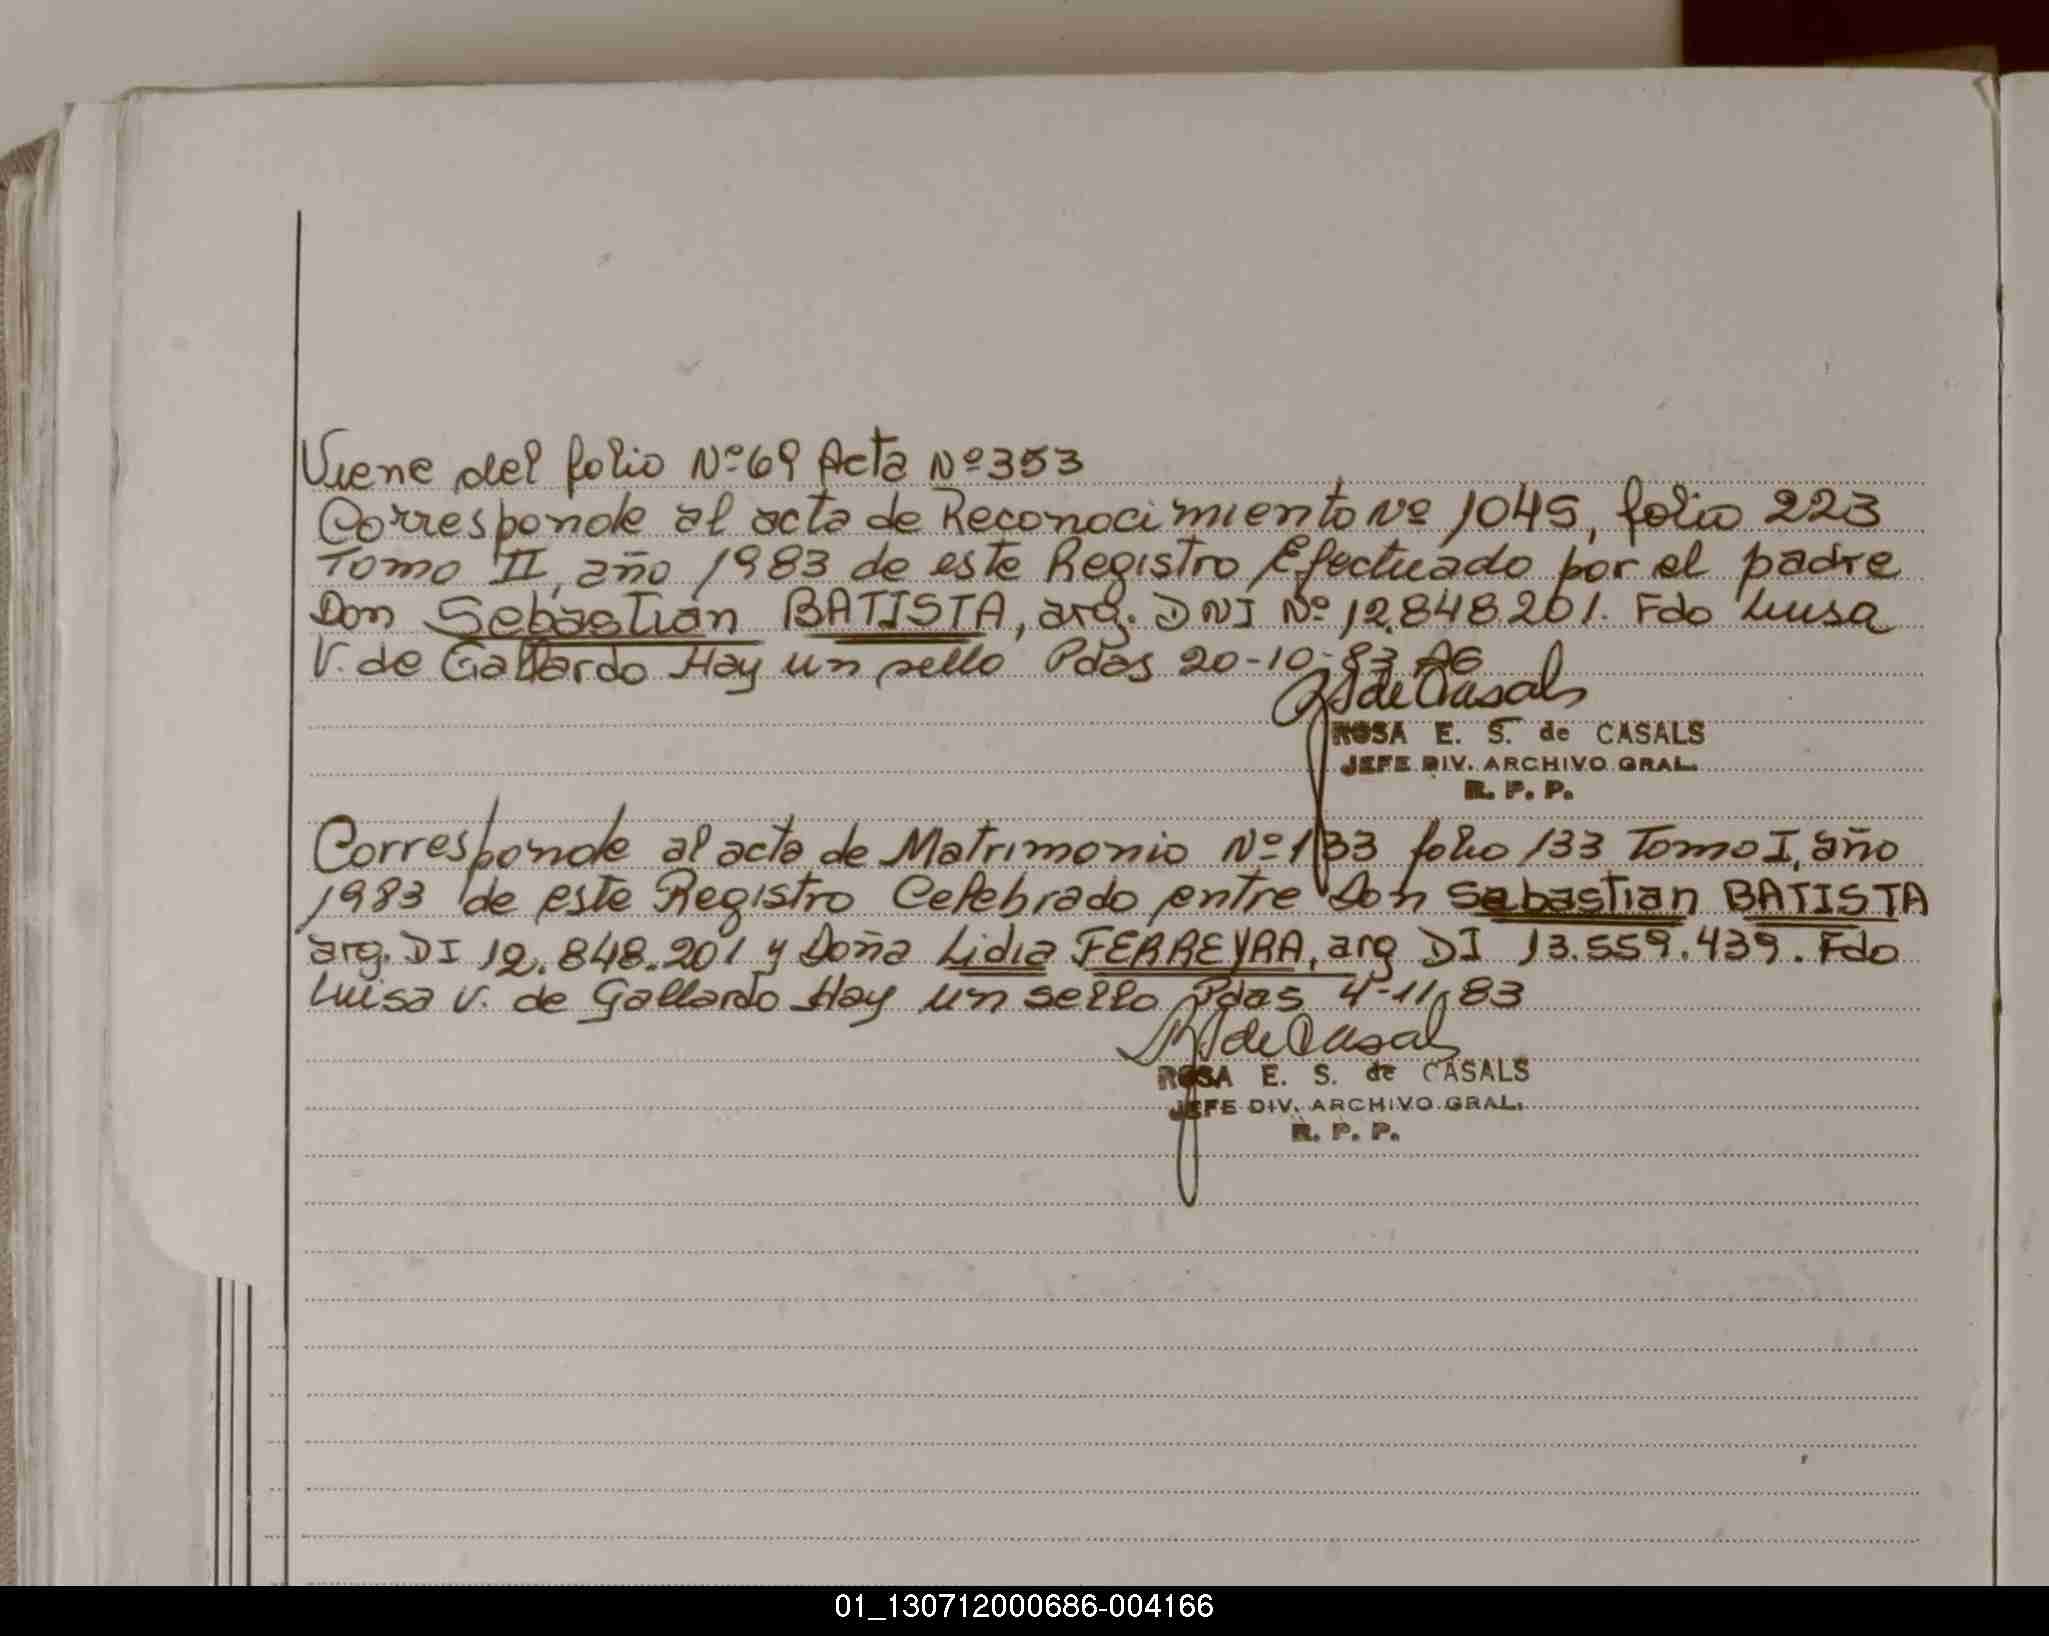 Viene del folio Nº 69 Acta Nº 353
Corresponde al acta de Reconocimiento Nº 1045, folio 223
Tomo II, año 1983 de este Registro Efectuado por el padre
Don Sebastian BATISTA, arg. DNI Nº 12.848.201. Fdo Luisa
V. de Gallardo Hay un sello Pdas 20-10-83 AG
de Casals
ROSA E. S. de CASALS
JEFE DIV. ARCHIVO GRAL.
R. P. P.
Corresponde al acta de Matrimonio Nº 133 folio 133 Tomo I, año
1983 de este Registro Celebrado entre Don Sebastian BATISTA
arg. DI 12.848.201 y Doña Lidia FERREYRA, arg DI 13.559.439. Fdo
Luisa V. de Gallardo Hay un sello Pdas 4-11-83
de Casals
ROSA E. S. de CASALS
JEFE DIV. ARCHIVO GRAL.
R. P. P.
01_130712000686-004166